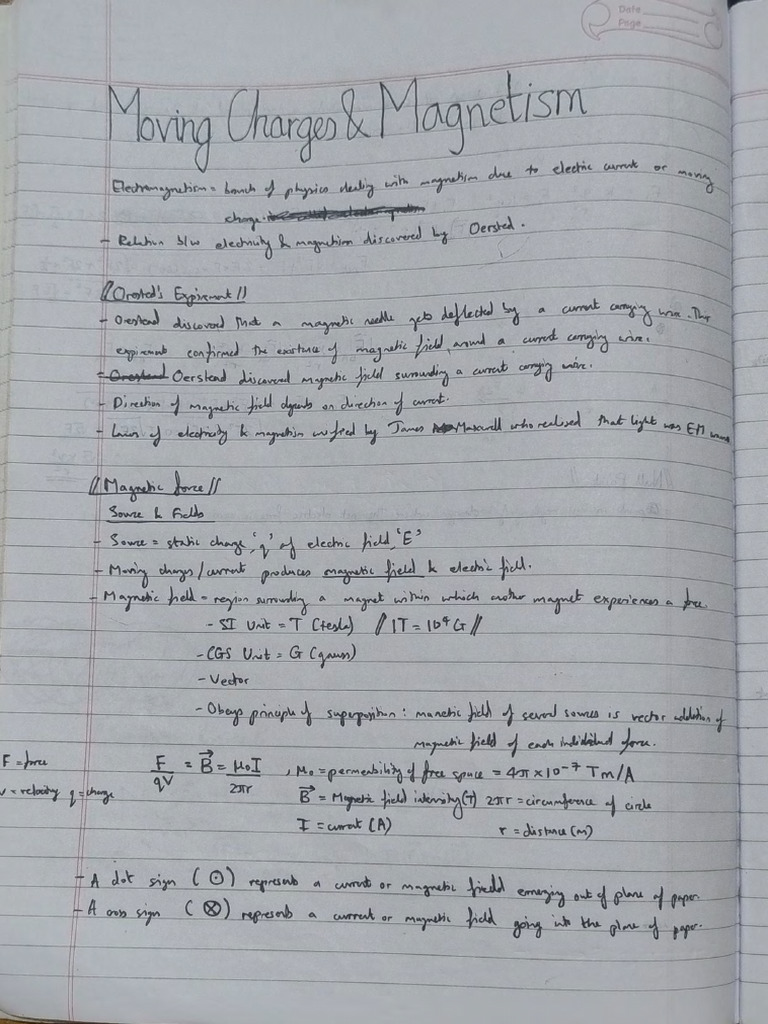 Date
Page
Moving Charges & Magnetism
Electromagnetism = branch of physics dealing with magnetism due to electric current or moving
charge.
- Relation b/w electricity & magnetism discovered by Oersted.
// Orested's Expirement //
- Orestead discovered that a magnetic needle gets deflected by a current carrying wire. This
expirement confirmed the existence of magnetic field, around a current carrying wire.
- Orestead Oerstead discovered magnetic field surrounding a current carrying wire.
- Direction of magnetic field depends on direction of current.
- Laws of electricity & magnetism unified by James Maxwell who realised that light was EM waves
// Magnetic force //
Source & Fields
- Source = static charge 'q' of electric field, 'E'
- Moving charges/current produces magnetic field & electric field.
- Magnetic field = region surrounding a magnet within which another magnet experiences a force.
- SI Unit = T (tesla) // 1T = 10⁴G //
- CGS Unit = G (gauss)
- Vector
- Obeys principle of superposition : manetic field of several sources is vector addition of
magnetic field of each individual force.
F = force F/qV = B⃗ = μ₀I/2πr , μ₀ = permeability of free space = 4π × 10⁻⁷ Tm/A
v = velocity q = charge B⃗ = Magnetic field intensity (T) 2πr = circumference of circle
I = current (A) r = distance (m)
- A dot sign (⊙) represents a current or magnetic field emerging out of plane of paper.
- A cross sign (⊗) represents a current or magnetic field going into the plane of paper.